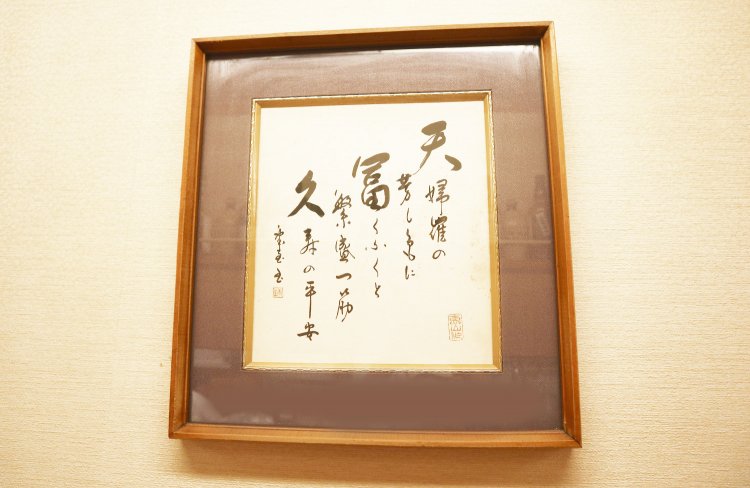 天婦羅の
芳し に
富くふくと
繁盛一筋
久寿の平安